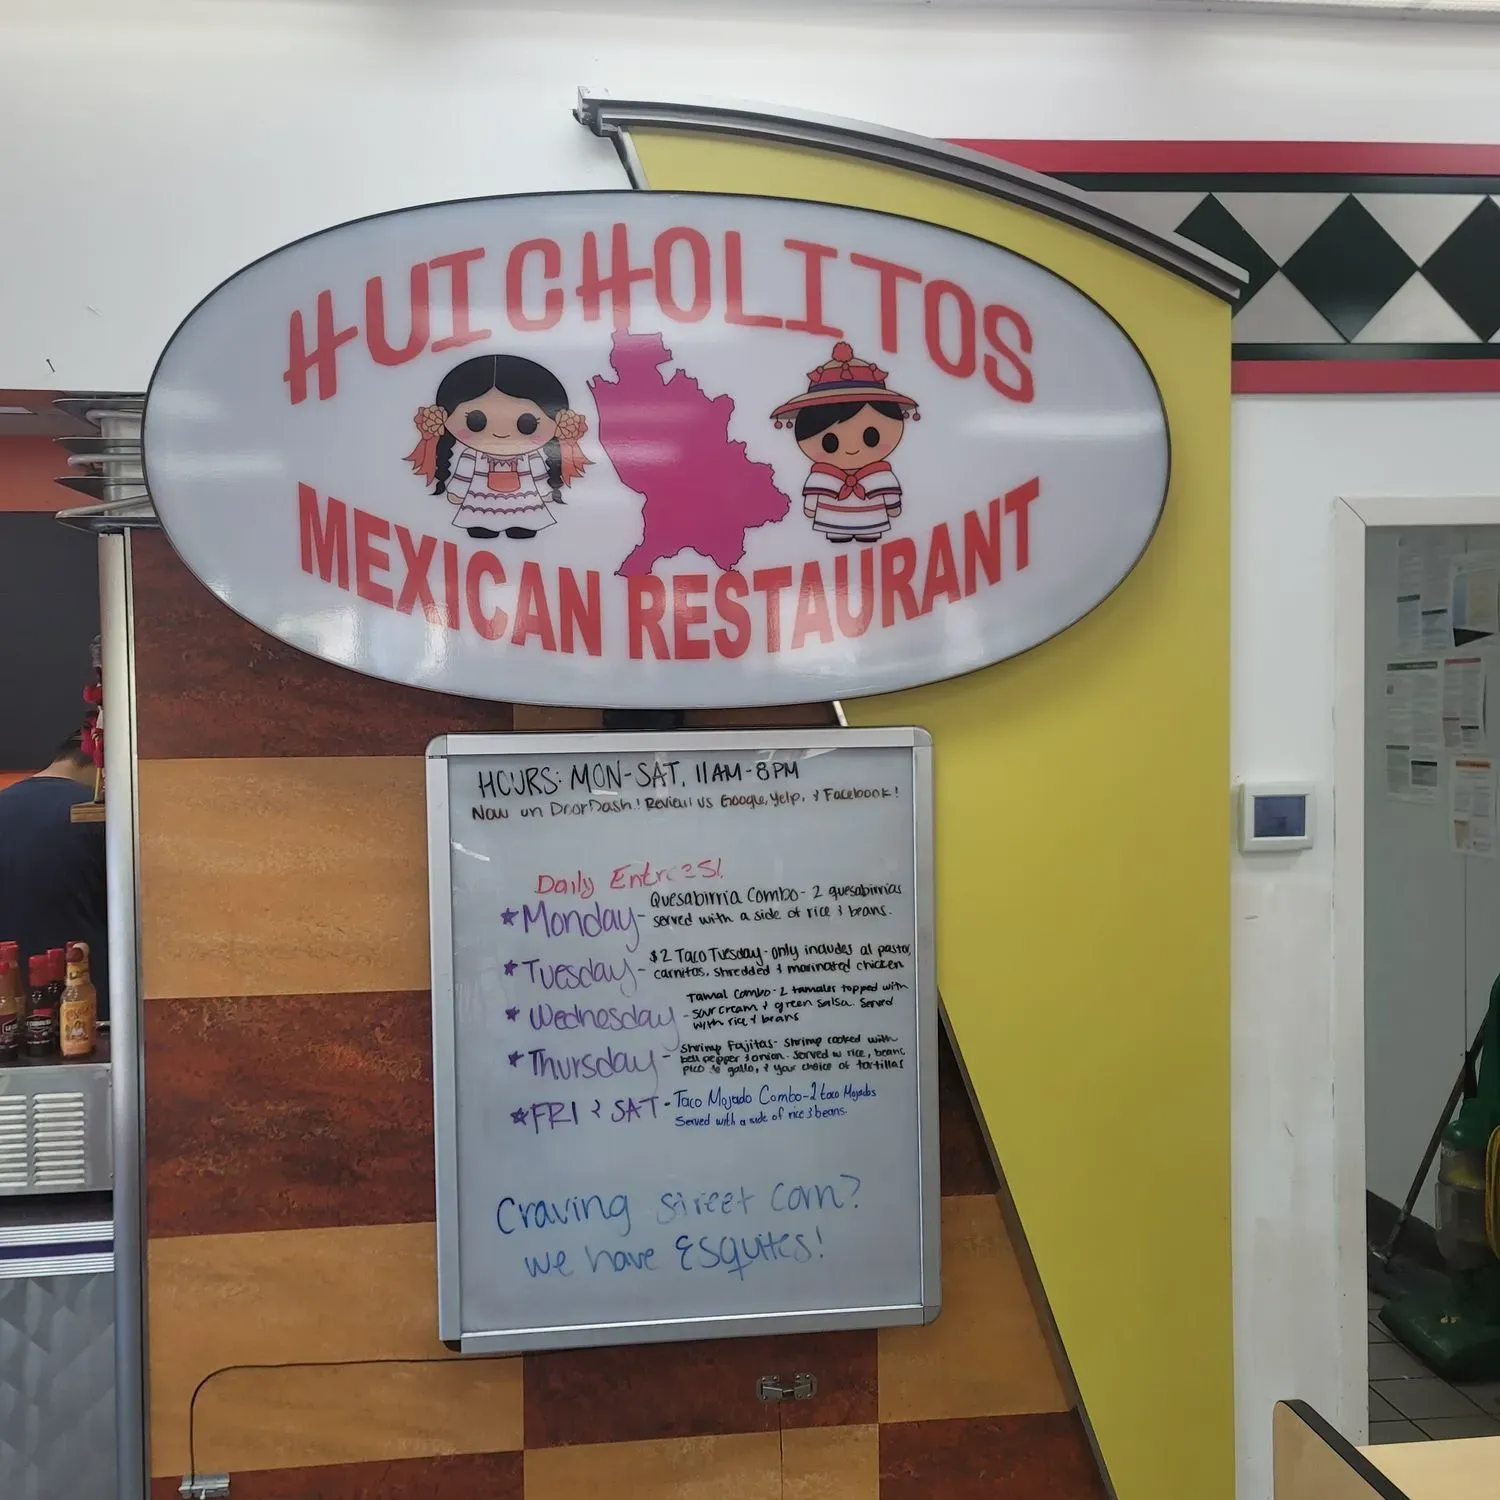 HUICHOLITOS
MEXICAN RESTAURANT
HOURS: MON-SAT, 11AM-8PM
Now on DoorDash! Review us Google, Yelp, & Facebook!
Daily Entrees!
*Monday- Quesabirria Combo- 2 quesabirrias
served with a side of rice & beans.
*Tuesday- $2 Taco Tuesday- only includes al pastor,
carnitas, shredded & marinated chicken
*Wednesday- Tamal Combo- 2 tamales topped with
sour cream & green salsa. Served
with rice & beans
*Thursday- Shrimp Fajitas- shrimp cooked with
bell pepper & onion. Served w rice, beans,
pico de gallo, & your choice of tortillas
*FRI & SAT- Taco Mojado Combo-2 taco Mojados
Served with a side of rice & beans.
Craving street corn?
we have Esquites!